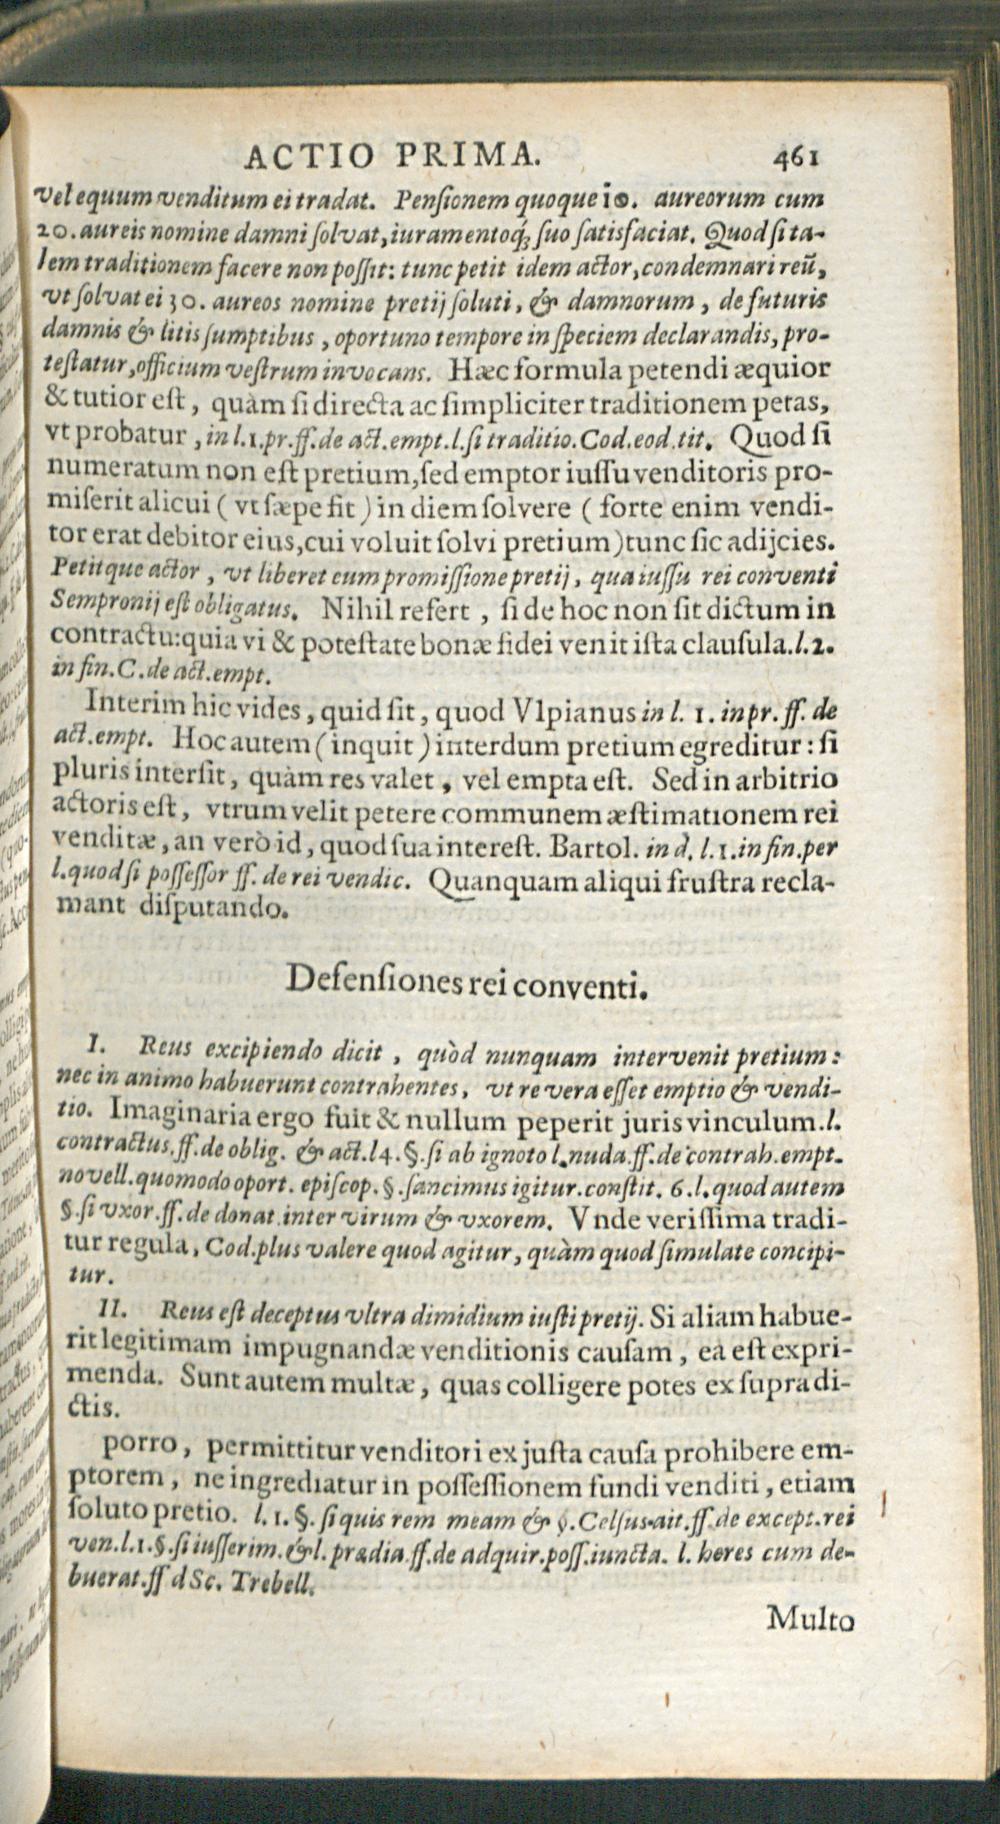 ACTIO PRIMA. 461
vel equum venditum ei tradat. Pensionem quoque 10. aureorum cum
20. aureis nomine damni solvat, iuramentoq́; suo satisfaciat. Quod si ta-
lem traditionem facere non possit: tunc petit idem actor, condemnari reū,
vt solvat ei 30. aureos nomine pretij soluti, & damnorum, de futuris
damnis & litis sumptibus, oportuno tempore in speciem declarandis, pro-
testatur, officium vestrum invocans. Hæc formula petendi æquior
& tutior est, quàm si directa ac simpliciter traditionem petas,
vt probatur, in l.1.pr.ff.de act.empt.l.si traditio.Cod.eod.tit. Quod si
numeratum non est pretium, sed emptor iussu venditoris pro-
miserit alicui (vt sæpe fit) in diem solvere (forte enim vendi-
tor erat debitor eius, cui voluit solvi pretium) tunc sic adijcies.
Petitque actor, vt liberet eum promissione pretij, qua iussu rei conventi
Sempronij est obligatus. Nihil refert, si de hoc non sit dictum in
contractu: quia vi & potestate bonæ fidei venit ista clausula. l.2.
in fin.C.de act.empt.
Interim hic vides, quid sit, quod Vlpianus in l. 1. in pr. ff. de
act.empt. Hoc autem (inquit) interdum pretium egreditur: si
pluris intersit, quàm res valet, vel empta est. Sed in arbitrio
actoris est, vtrum velit petere communem æstimationem rei
venditæ, an verò id, quod sua interest. Bartol. in d. l.1.in fin.per
l.quod si possessor ff. de rei vendic. Quanquam aliqui frustra recla-
mant disputando.
Defensiones rei conventi.
I. Reus excipiendo dicit, quòd nunquam intervenit pretium:
nec in animo habuerunt contrahentes, vt re vera esset emptio & vendi-
tio. Imaginaria ergo fuit & nullum peperit juris vinculum. l.
contractus.ff.de oblig. & act.l4.§.si ab ignoto l.nuda.ff.de contrah.empt.
novell.quomodo oport. episcop.§.sancimus igitur.constit. 6.l.quod autem
§.si vxor.ff.de donat.inter virum & vxorem. Vnde verissima tradi-
tur regula, Cod.plus valere quod agitur, quàm quod simulate concipi-
tur.
II. Reus est deceptus vltra dimidium iusti pretij. Si aliam habue-
rit legitimam impugnandæ venditionis causam, ea est expri-
menda. Sunt autem multæ, quas colligere potes ex supra di-
ctis.
porro, permittitur venditori ex justa causa prohibere em-
ptorem, ne ingrediatur in possessionem fundi venditi, etiam
soluto pretio. l.1.§. si quis rem meam & §.Celsus ait.ff.de except.rei
ven.l.1.§.si iusserim.& l. prædia.ff.de adquir.poss.iuncta. l. heres cum de-
buerat.ff d Sc. Trebell.
Multo